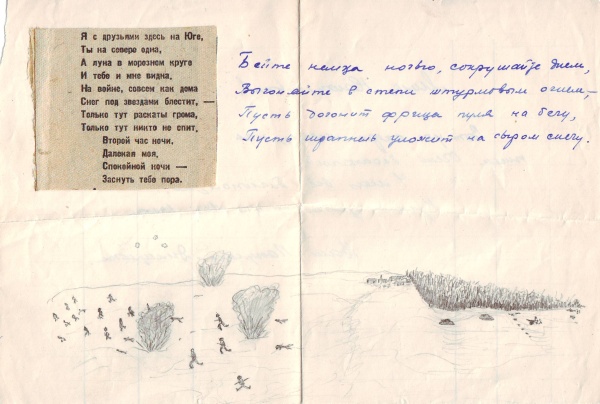 Я с друзьями здесь на Юге,
Ты на севере одна,
А луна в морозном круге
И тебе и мне видна,
На войне, совсем как дома
Снег под звездами блестит, —
Только тут раскаты грома,
Только тут никто не спит,
Второй час ночи,
Далекая моя,
Спокойной ночи —
Заснуть тебе пора.
Бейте немца ночью, сокрушайте днем,
Выгоняйте в степи штурмовым огнем, —
Пусть догонит фрица пуля на бегу,
Пусть шрапнель уложит на сыром снегу.